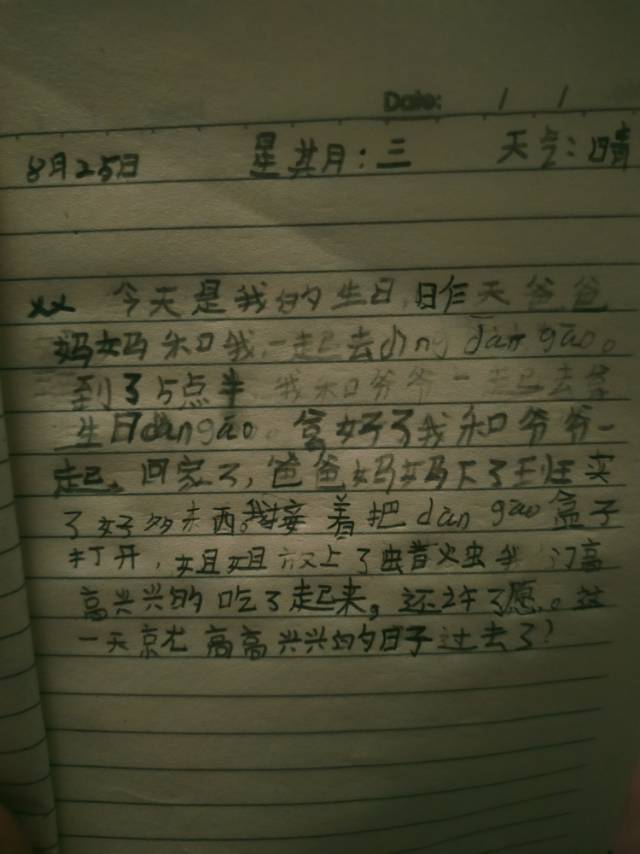 Date: / /
8月25日 星期:三 天气:晴
今天是我的生日,昨天爷爸
妈妈和我,一起去dìng dàn gāo。
到了5点半,我和爷爷一起去拿
生日dàn gāo。拿好了我和爷爷一
起,回家了,爸爸妈妈下了班买
了好多东西。我接着把dàn gāo盒子
打开,姐姐放上了蜡火虫我们高
高兴兴的吃了起来,还许了愿。这
一天就高高兴兴的日子过去了?